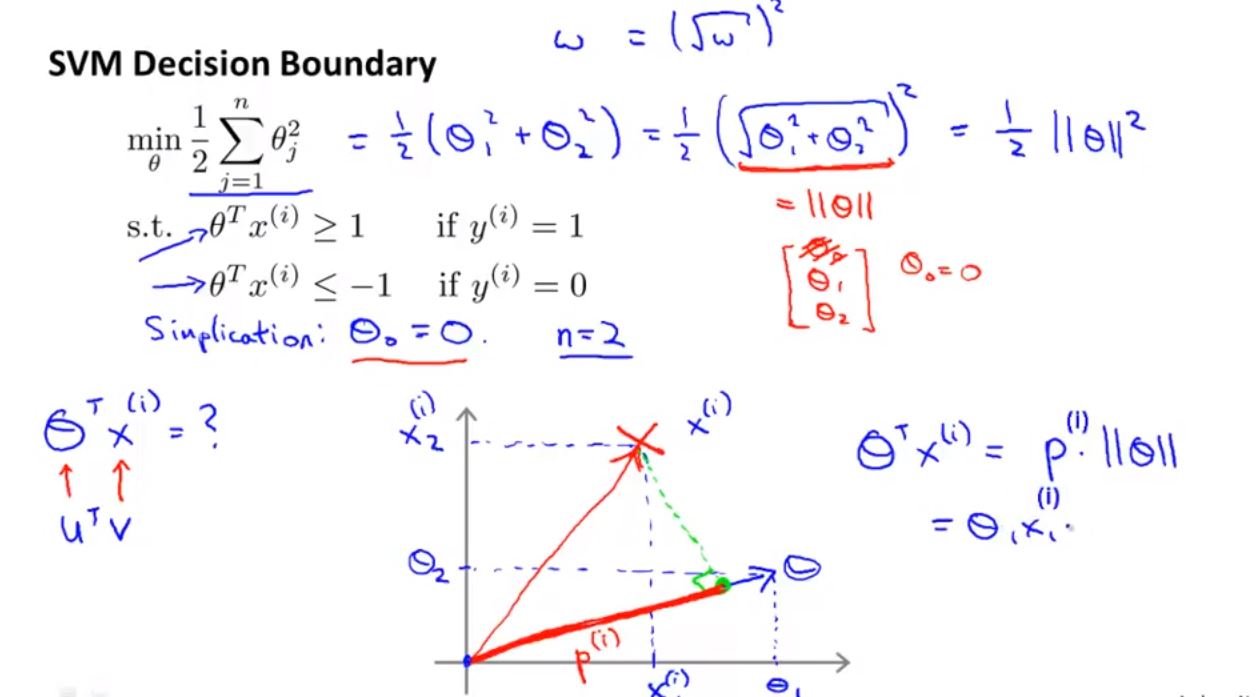 ω = (√ω)²
SVM Decision Boundary
min_θ 1/2 ∑_{j=1}^{n} θ_j² = 1/2 (θ₁² + θ₂²) = 1/2 (√(θ₁² + θ₂²))² = 1/2 ||θ||²
= ||θ||
s.t. θᵀx⁽ⁱ⁾ ≥ 1 if y⁽ⁱ⁾ = 1
θᵀx⁽ⁱ⁾ ≤ −1 if y⁽ⁱ⁾ = 0
[θ₀ θ₁ θ₂] θ₀ = 0
Simplication: θ₀ = 0. n=2
θᵀx⁽ⁱ⁾ = ?
uᵀv
x₂⁽ⁱ⁾
x⁽ⁱ⁾
θ₂
θ
p⁽ⁱ⁾
x₁⁽ⁱ⁾
θ₁
θᵀx⁽ⁱ⁾ = p⁽ⁱ⁾ · ||θ||
= θ₁x₁⁽ⁱ⁾